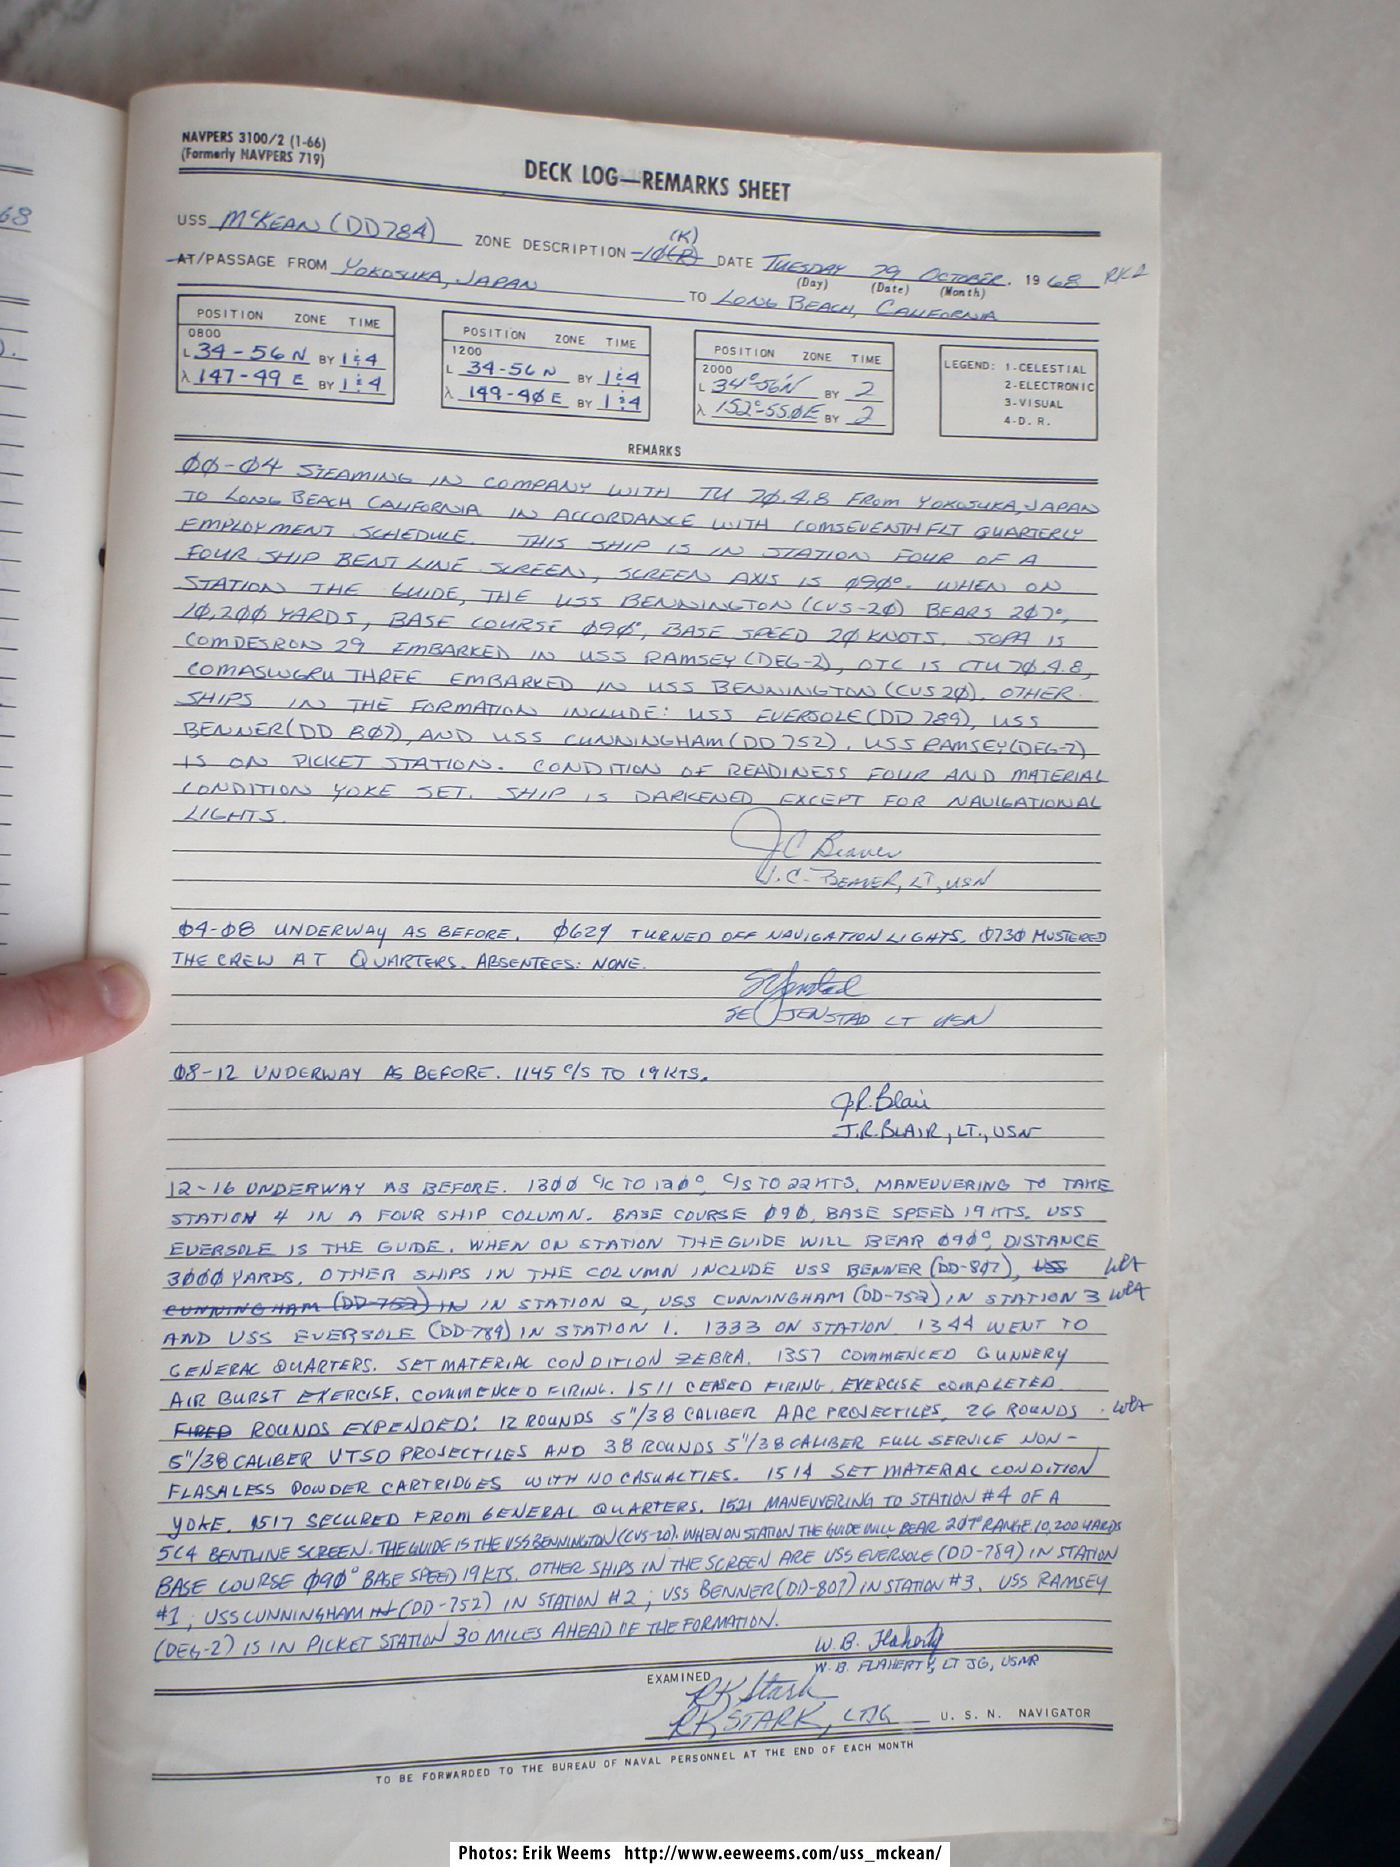 68
NAVPERS 3100/2 (1-66)
(Formerly NAVPERS 719)
DECK LOG—REMARKS SHEET
USS McKEAN (DD784) ZONE DESCRIPTION -10(R) (K) DATE TUESDAY 29 OCTOBER. 1968
(Day) (Date) (Month)
AT/PASSAGE FROM YOKOSUKA, JAPAN TO LONG BEACH, CALIFORNIA
POSITION ZONE TIME
0800
L 34-56 N BY 1&4
λ 147-49 E BY 1&4
POSITION ZONE TIME
1200
L 34-56 N BY 1&4
λ 149-40 E BY 1&4
POSITION ZONE TIME
2000
L 34°-56'N BY 2
λ 152°-55.0E BY 2
LEGEND: 1-CELESTIAL
2-ELECTRONIC
3-VISUAL
4-D. R.
REMARKS
00-04 STEAMING IN COMPANY WITH TU 70.4.8 FROM YOKOSUKA, JAPAN
TO LONG BEACH CALIFORNIA IN ACCORDANCE WITH COMSEVENTHFLT QUARTERLY
EMPLOYMENT SCHEDULE. THIS SHIP IS IN STATION FOUR OF A
FOUR SHIP BENT LINE SCREEN, SCREEN AXIS IS 090°. WHEN ON
STATION THE GUIDE, THE USS BENNINGTON (CVS-20) BEARS 207°,
10,200 YARDS, BASE COURSE 090°, BASE SPEED 20 KNOTS. SOPA IS
COMDESRON 29 EMBARKED IN USS RAMSEY (DEG-2), OTC IS CTU 70.4.8,
COMASWGRU THREE EMBARKED IN USS BENNINGTON (CVS 20). OTHER
SHIPS IN THE FORMATION INCLUDE: USS EVERSOLE (DD 789), USS
BENNER (DD 807), AND USS CUNNINGHAM (DD 752). USS RAMSEY (DEG-2)
IS ON PICKET STATION. CONDITION OF READINESS FOUR AND MATERIAL
CONDITION YOKE SET. SHIP IS DARKENED EXCEPT FOR NAVIGATIONAL
LIGHTS.
J C Beaver
J. C. BEAVER, LT, USN
04-08 UNDERWAY AS BEFORE. 0629 TURNED OFF NAVIGATION LIGHTS. 0730 MUSTERED
THE CREW AT QUARTERS. ABSENTEES: NONE.
SE Jenstad
SE JENSTAD LT USN
08-12 UNDERWAY AS BEFORE. 1145 C/S TO 19 KTS.
J.R. Blair
J.R. BLAIR, LT., USN
12-16 UNDERWAY AS BEFORE. 1300 C/C TO 120°, C/S TO 22 KTS. MANEUVERING TO TAKE
STATION 4 IN A FOUR SHIP COLUMN. BASE COURSE 090, BASE SPEED 19 KTS. USS
EVERSOLE IS THE GUIDE. WHEN ON STATION THE GUIDE WILL BEAR 090°, DISTANCE
3000 YARDS. OTHER SHIPS IN THE COLUMN INCLUDE USS BENNER (DD-807), USS
CUNNINGHAM (DD-752) IN IN STATION 2, USS CUNNINGHAM (DD-752) IN STATION 3
AND USS EVERSOLE (DD-789) IN STATION 1. 1333 ON STATION 1344 WENT TO
GENERAL QUARTERS. SET MATERIAL CONDITION ZEBRA. 1357 COMMENCED GUNNERY
AIR BURST EXERCISE. COMMENCED FIRING. 1511 CEASED FIRING. EXERCISE COMPLETED.
FIRED ROUNDS EXPENDED: 12 ROUNDS 5"/38 CALIBER AAC PROJECTILES, 26 ROUNDS
5"/38 CALIBER VTSD PROJECTILES AND 38 ROUNDS 5"/38 CALIBER FULL SERVICE NON-
FLASHLESS POWDER CARTRIDGES WITH NO CASUALTIES. 1514 SET MATERIAL CONDITION
YOKE. 1517 SECURED FROM GENERAL QUARTERS. 1521 MANEUVERING TO STATION #4 OF A
5C4 BENTLINE SCREEN. THE GUIDE IS THE USS BENNINGTON (CVS-20). WHEN ON STATION THE GUIDE WILL BEAR 207° RANGE 10,200 YARDS
BASE COURSE 090° BASE SPEED 19 KTS. OTHER SHIPS IN THE SCREEN ARE USS EVERSOLE (DD-789) IN STATION
#1, USS CUNNINGHAM IN (DD-752) IN STATION #2; USS BENNER (DD-807) IN STATION #3. USS RAMSEY
(DEG-2) IS IN PICKET STATION 30 MILES AHEAD OF THE FORMATION.
W. B. Flaherty
W. B. FLAHERTY, LT JG, USNR
EXAMINED
RK Stark
RK STARK, LTJG U. S. N. NAVIGATOR
TO BE FORWARDED TO THE BUREAU OF NAVAL PERSONNEL AT THE END OF EACH MONTH
Photos: Erik Weems http://www.eeweems.com/uss_mckean/